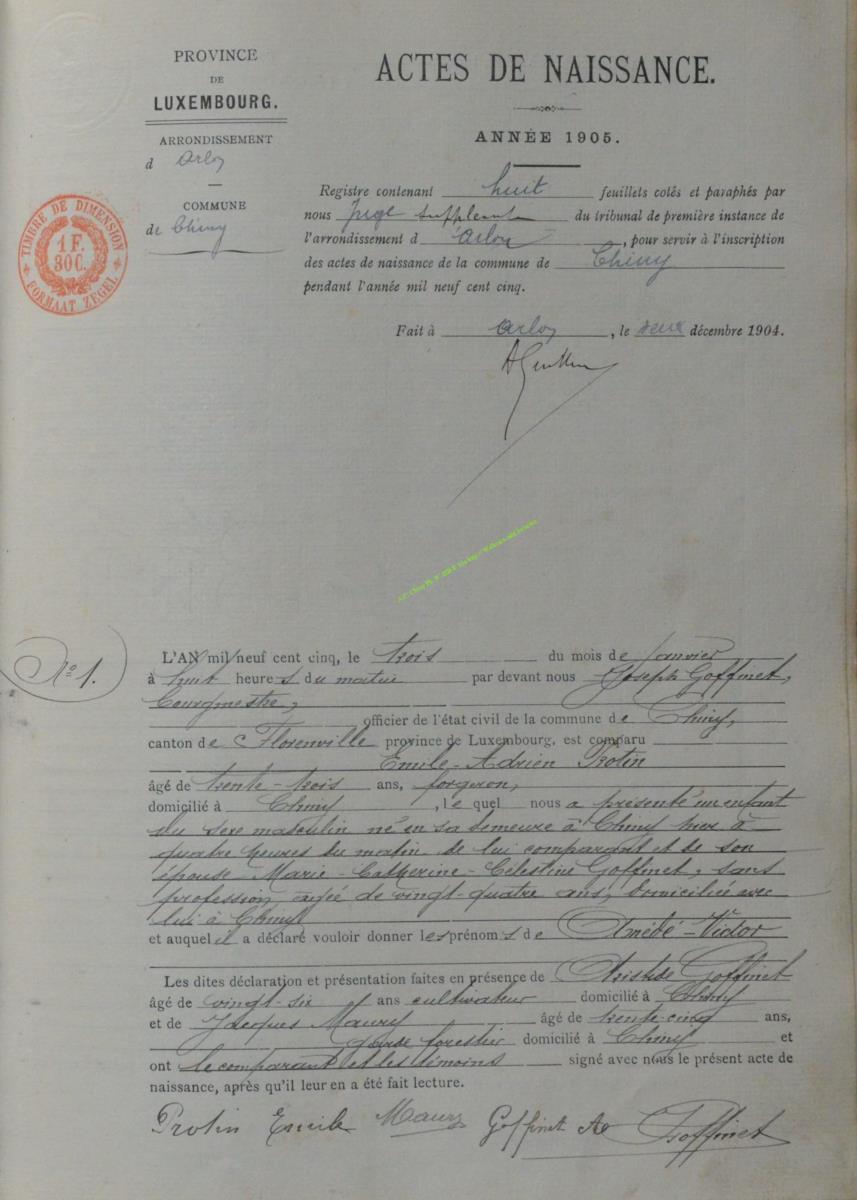 PROVINCE
DE
LUXEMBOURG.
ARRONDISSEMENT
d Arlon
COMMUNE
de Chiny
TIMBRE DE DIMENSION
1 F.
30 C.
FORMAAT ZEGEL
ACTES DE NAISSANCE.
ANNÉE 1905.
Registre contenant huit feuillets cotés et paraphés par
nous Juge suppléant du tribunal de première instance de
l'arrondissement d Arlon, pour servir à l'inscription
des actes de naissance de la commune de Chiny
pendant l'année mil neuf cent cinq.
Fait à Arlon, le deux décembre 1904.
No 1.
L'AN mil neuf cent cinq, le trois du mois de janvier
à huit heures du matin par devant nous Joseph Goffinet,
bourgmestre,
officier de l'état civil de la commune de Chiny,
canton de Florenville province de Luxembourg, est comparu
Emile-Adrien Protin
âgé de trente-trois ans, forgeron,
domicilié à Chiny, lequel nous a présenté un enfant
du sexe masculin né en sa demeure à Chiny hier à
quatre heures du matin de lui comparant et de son
épouse Marie-Catherine-Célestine Goffinet, sans
profession, agée de vingt-quatre ans, domiciliée avec
lui à Chiny
et auquel il a déclaré vouloir donner les prénoms de Amédé-Victor
Les dites déclaration et présentation faites en présence de Aristide Goffinet
âgé de vingt-six ans cultivateur domicilié à Chiny
et de Jacques Maury âgé de trente-cinq ans,
garde forestier domicilié à Chiny et
ont le comparant et les témoins signé avec nous le présent acte de
naissance, après qu'il leur en a été fait lecture.
Protin Emile Maury Goffinet Ae J Goffinet